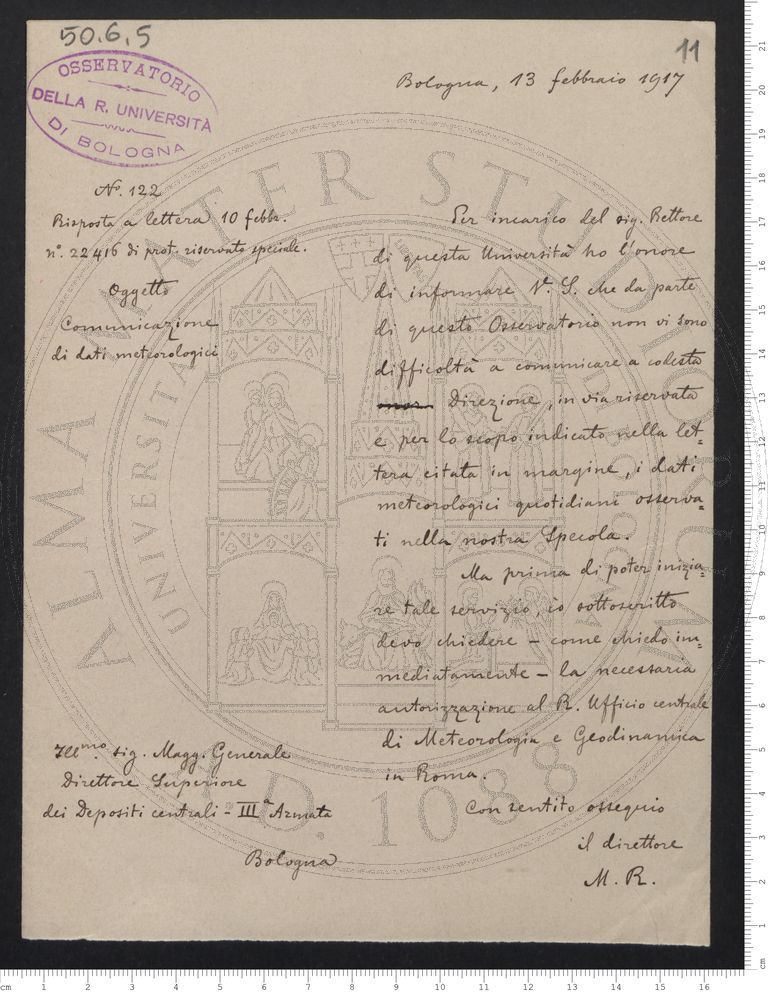 50.6.5
11
OSSERVATORIO
DELLA R. UNIVERSITÀ
DI BOLOGNA
Bologna, 13 febbraio 1917
N.º 122
Risposta a lettera 10 febbr.
n.º 22416 di prot. riservato speciale.
Oggetto
Comunicazione
di dati meteorologici
Per incarico del sig. Rettore
di questa Università ho l'onore
di informare V. S. che da parte
di questo Osservatorio non vi sono
difficoltà a comunicare a codesta
Direzione, in via riservata
e per lo scopo indicato nella let=
tera citata in margine, i dati
meteorologici quotidiani osserva=
ti nella nostra Specola.
Ma prima di poter inizia=
re tale servizio, io sottoscritto
devo chiedere – come chiedo im=
mediatamente – la necessaria
autorizzazione al R. Ufficio centrale
di Meteorologia e Geodinamica
in Roma.
Con sentito ossequio
il direttore
M. R.
Ill.mo sig. Magg. Generale
Direttore Superiore
dei Depositi centrali - IIIa Armata
Bologna
ALMA MATER STUDIORUM
A.D. 1088